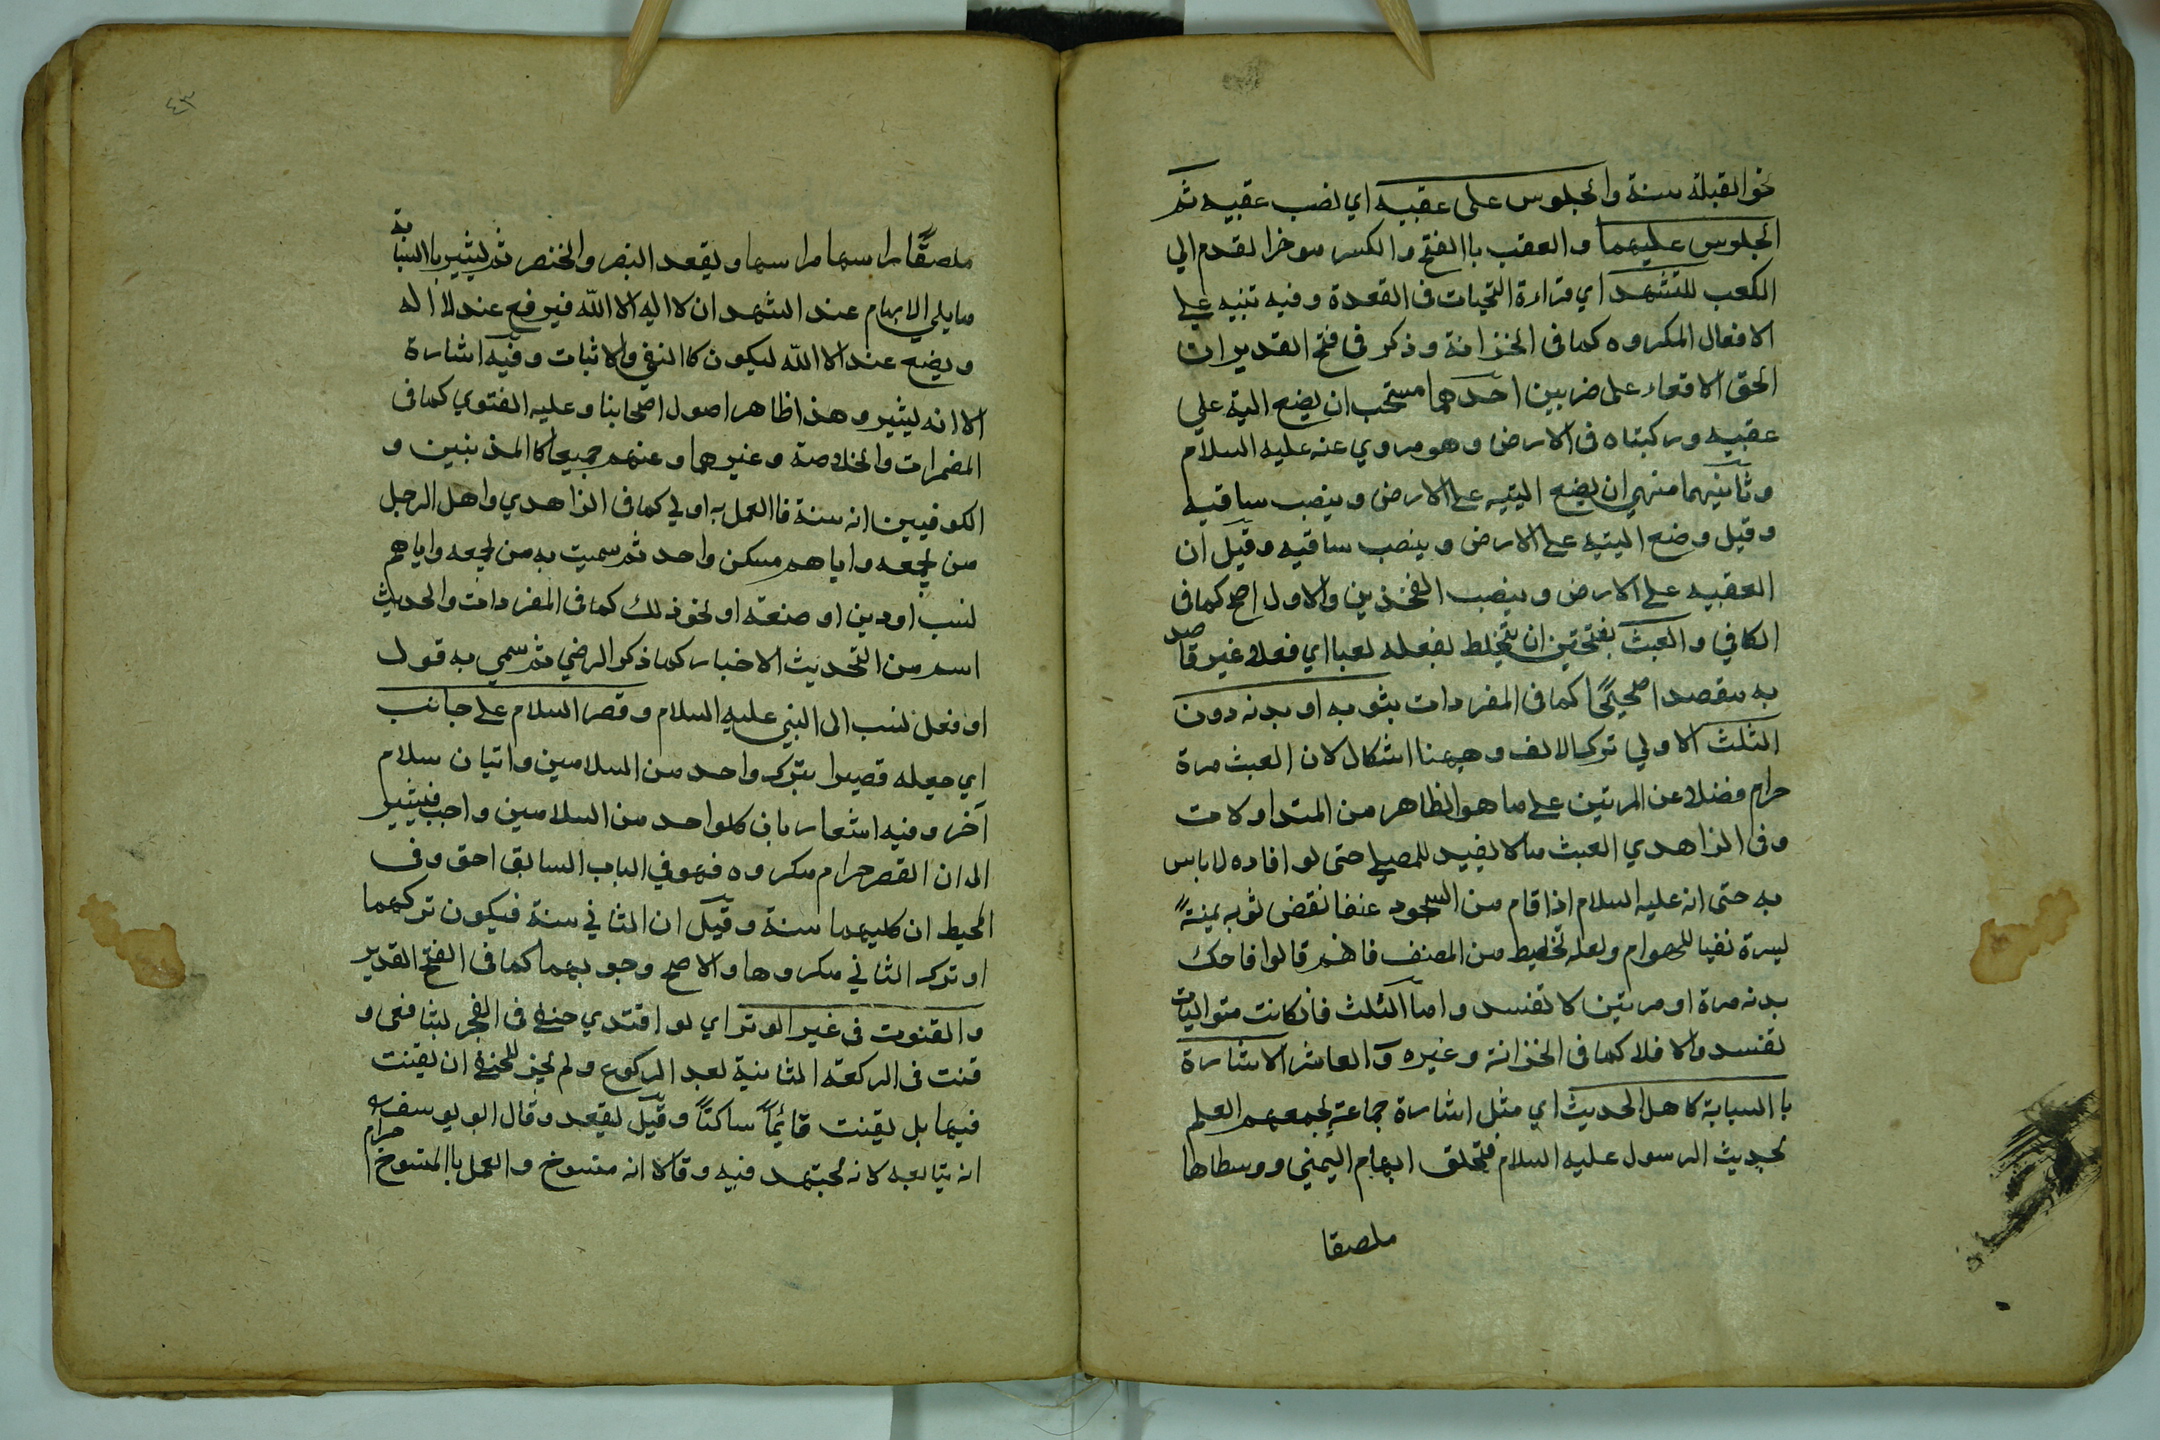 نحو القبلة سنة والجلوس على عقبيه اي نصب عقبيه ثم
الجلوس عليهما والعقب باالفتح والكسر موخر القدم الي
الكعب للتشهد اي قراءة التحيات في القعدة وفيه تنبيه علي
الافعال المكروه كما في الخزانة وذكر في فتح القدير ان
الحق الاقعاء على ضربين احدهما مستحب ان يضع الية علي
عقبيه وركبتاه في الارض وهو مروي عنه عليه السلام
وثانيهما منهي ان يضع اليتيه على الارض وينصب ساقيه
وقيل وضع اليتيه على الارض وينصب ساقيه وقيل ان
العقبيه على الارض وينصب الفخذين والاول اصح كما في
الكافي والعبث بفتحتين ان يخلط بفعله لعبا اي فعلا غير قاصد
به مقصدا صحيحًا كما في المفردات بثوبه او بدنه دون
الثلث الاولي ترك الالف وههنا اشكال لان العبث مرة
حرام فضلا عن المرتين على ما هو الظاهر من المتداولات
وفي الزاهدي العبث مالا يفيد للمصلي حتى لو افاده لا باس
به حتى انه عليه السلام اذا قام من السجود نفض ثوبه يمنةً
يسرة نفيا للهوام ولعله تخليط من المصنف فانهم قالوا فاحك
بدنه مرة او مرتين لا تفسد واما الثلث فانكانت متواليات
تفسد والا فلا كما في الخزانة وغيره والعاشر الاشارة
باالسبابة كاهل الحديث اي مثل اشارة جماعة يجمعهم العلم
بحديث الرسول عليه السلام فتحلق ابهام اليمني ووسطاها
ملصقا
٤٣
ملصقًا راسها براسها ويقعد البنصر والخنصر ثم يشير باالسبابة
مايلي الابهام عند الشهد ان لا اله الا الله فيرفع عند لا اله
ويضع عند الا الله ليكون كاالنفي والاثبات وفيه اشارة
الا انه يشير وهذا ظاهر اصول اصحابنا وعليه الفتوي كما في
المضمرات والخلاصة وغيرهما وعنهم جميعا كاالمذنبين و
الكوفيين انه سنة فاالعمل به اولي كما في الزاهدي واهل الرجل
من يجمعه واياهم مسكن واحد ثم سميت به من يجمعه واياهم
نسب او دين او صنعه او نحو ذلك كما في المفردات والحديث
اسم من التحديث الاخبار كما ذكر الرضي ثم سمي به قول
او فعل نسب الى النبي عليه السلام وقصر السلام على جانب
اي جعله قصيرا بترك واحد من السلامين واتيان سلام
آخر وفيه اشعار بان كلواحد من السلامين واجب فيشير
الى ان القصر حرام مكروه فهو في الباب السابق احق وفي
المحيط ان كليهما سنة وقيل ان الثاني سنة فيكون تركهما
او ترك الثاني مكروها والاصح وجوبهما كما في الفتح القدير
والقنوت في غير الوتر اي لو اقتدي حنفي في الفجر بشافعي و
قنت في الركعة الثانية بعد الركوع ولم يجز للحنفي ان يقنت
فيها بل يقنت قائمًا ساكتًا وقيل يقعد وقال ابو يوسف
انه يتابعه لانه مجتهد فيه وقالا انه منسوخ والعمل باالمنسوخ حرام